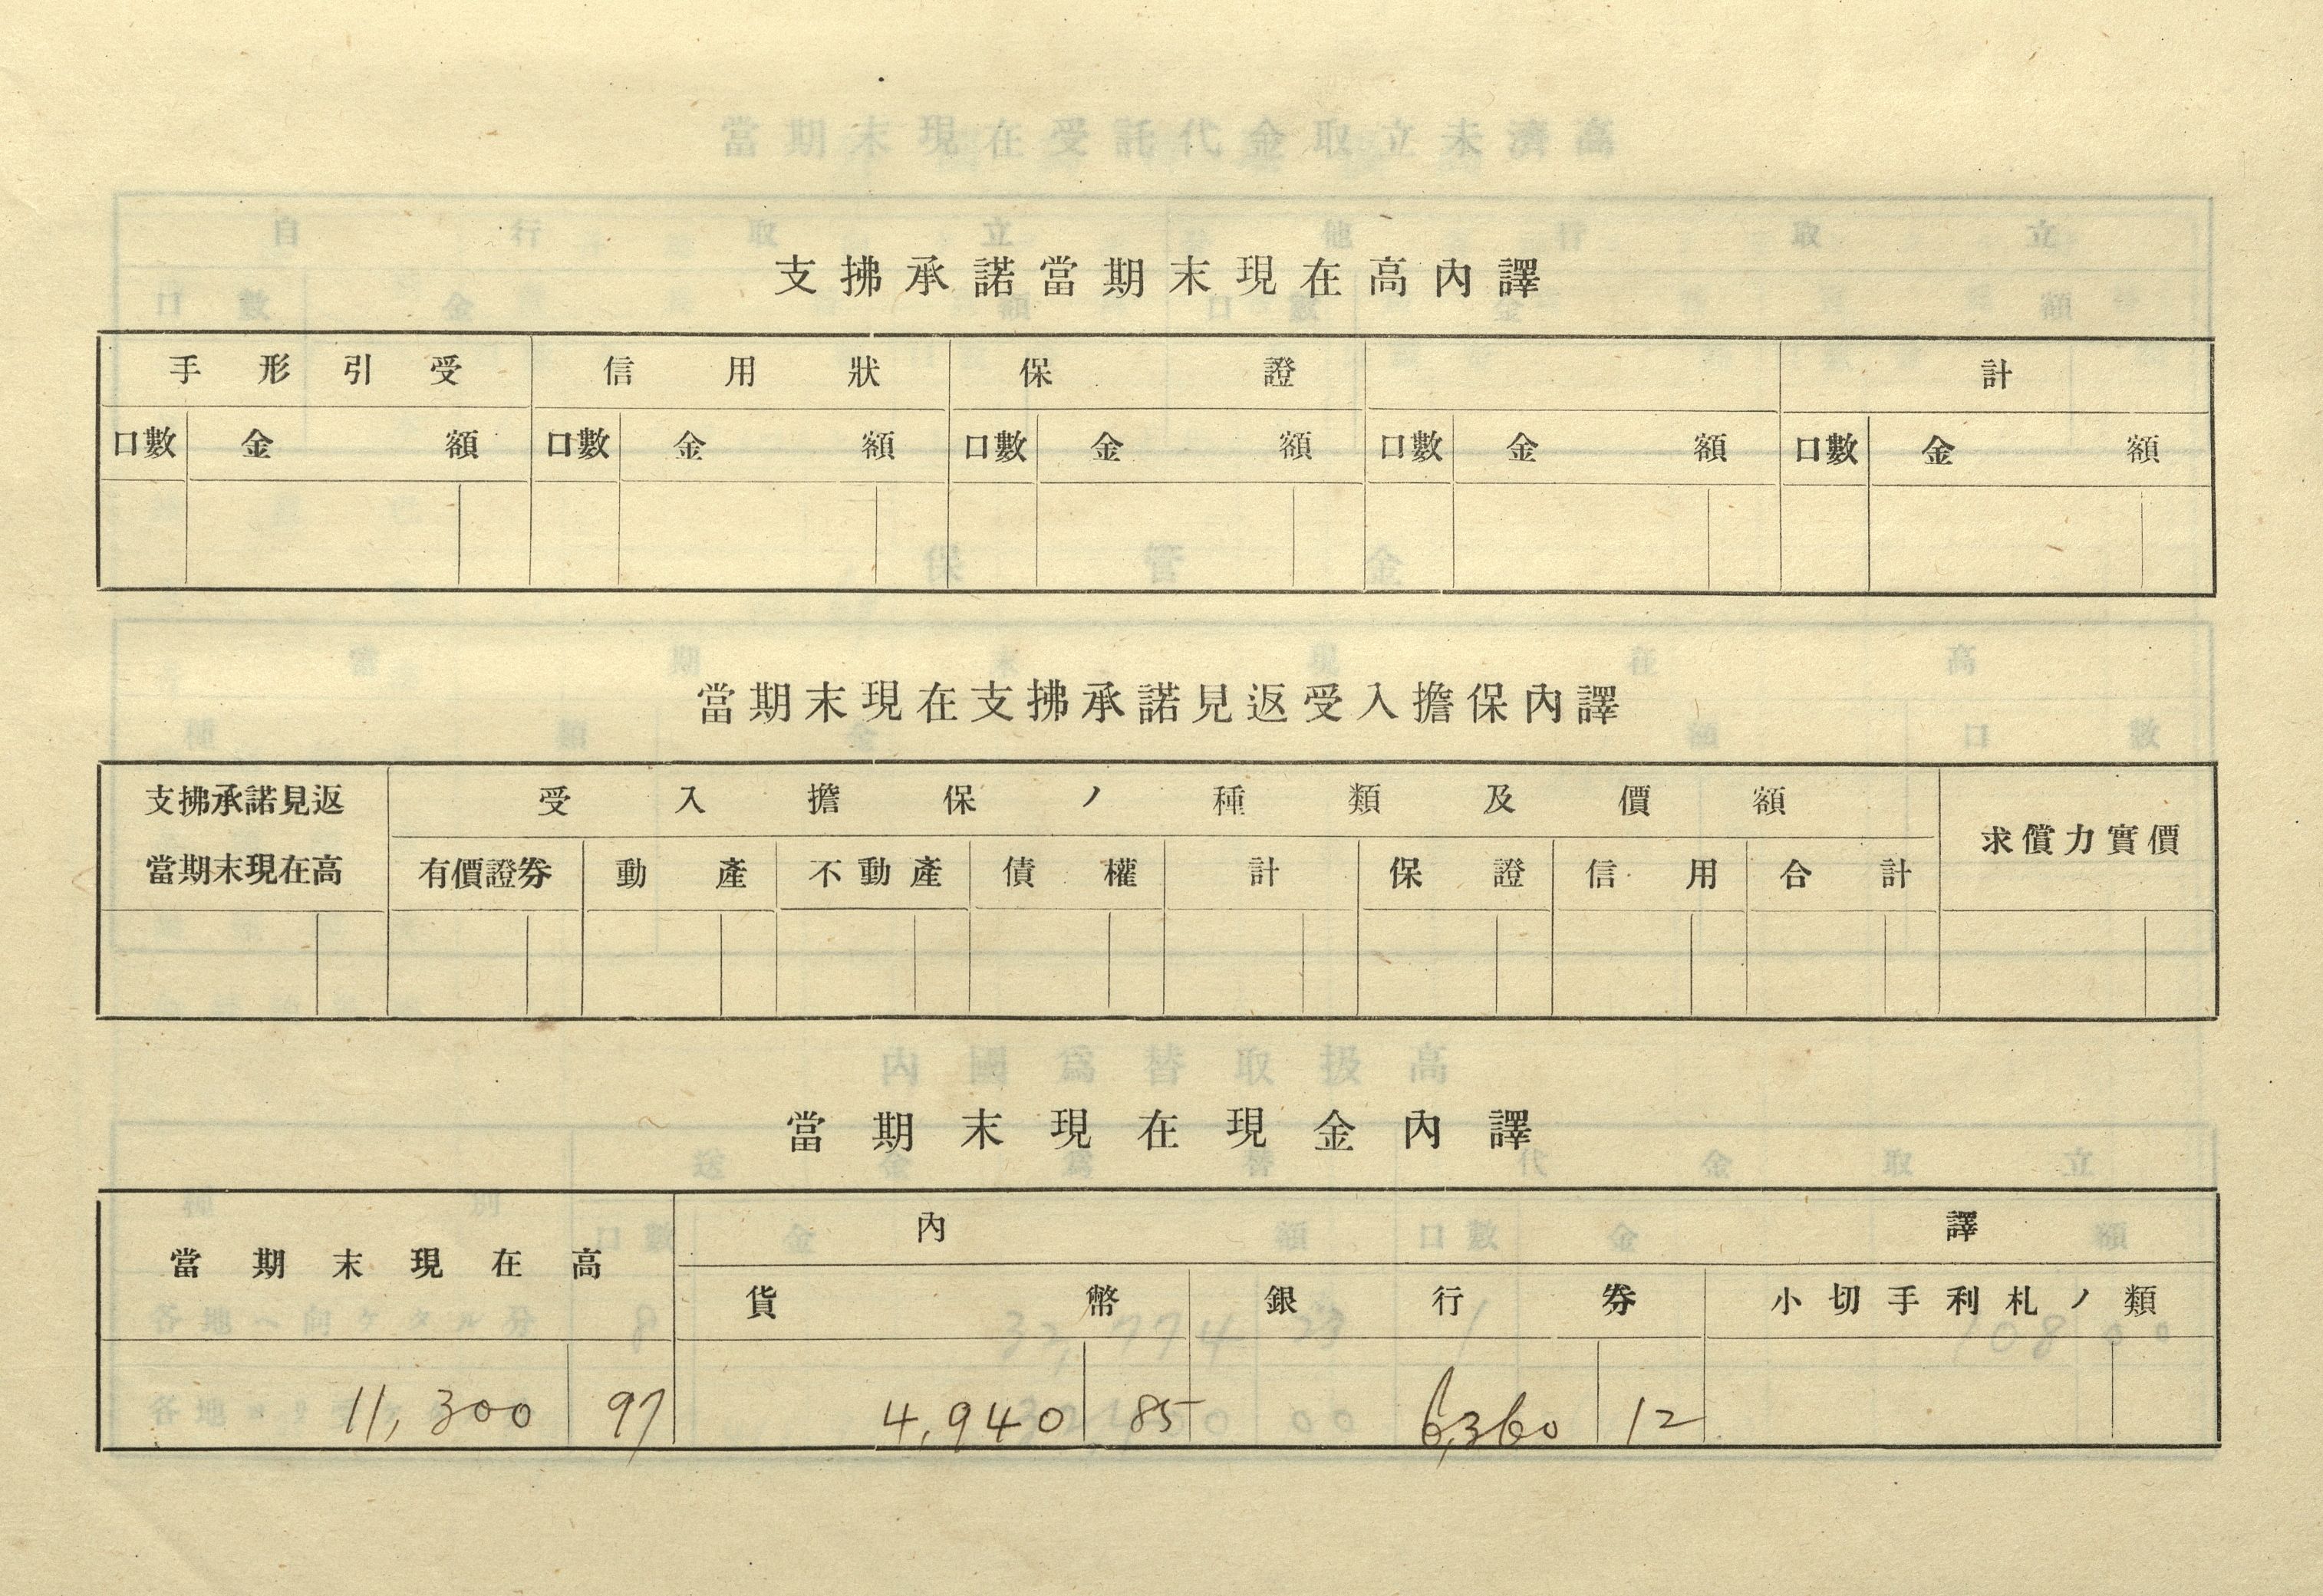 支拂承諾當期末現在高內譯
手形引受 信用狀 保證 計
口數 金額 口數 金額 口數 金額 口數 金額 口數 金額
當期末現在支拂承諾見返受入擔保內譯
支拂承諾見返 受入擔保ノ種類及價額 求償力實價
當期末現在高 有價證券 動產 不動產 債權 計 保證 信用 合計
當期末現在現金內譯
當期末現在高 內譯
貨幣 銀行券 小切手利札ノ類
11,300 97 4,940 85 6,360 12